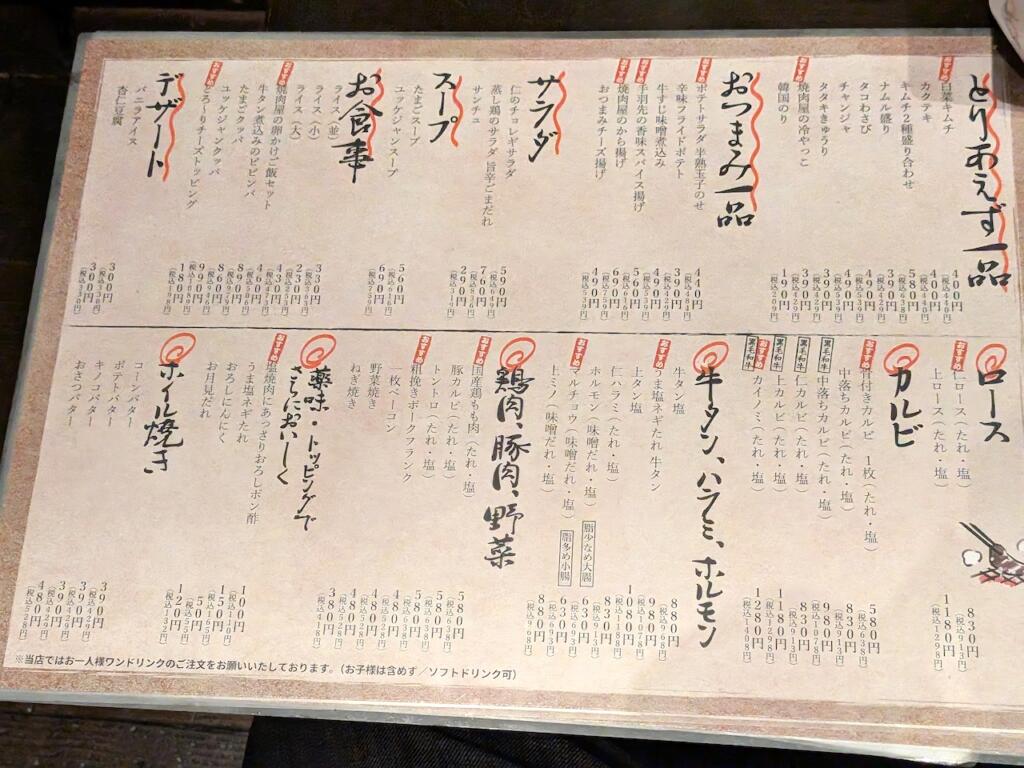 とりあえず一品
おすすめ 白菜キムチ 400円（税込440円）
カクテキ 400円（税込440円）
キムチ2種盛り合わせ 580円（税込638円）
ナムル盛り 390円（税込429円）
タコわさび 490円（税込539円）
チャンジャ 490円（税込539円）
タタキきゅうり 390円（税込429円）
おすすめ 焼肉屋の冷やっこ 390円（税込429円）
韓国のり 190円（税込209円）
おつまみ一品
おすすめ ポテトサラダ 半熟玉子のせ 440円
辛味フライドポテト 390円（税込429円）
牛すじ味噌煮込み
おすすめ 手羽先の香味スパイス揚げ 560円（税込616円）
おすすめ 焼肉屋のから揚げ 690円（税込759円）
おつまみチーズ揚げ 490円（税込539円）
サラダ
仁のチョレギサラダ 590円（税込649円）
蒸し鶏のサラダ 旨辛ごまだれ 760円（税込836円）
サンチュ 290円（税込319円）
スープ
たまごスープ 560円（税込616円）
ユッケジャンスープ 690円（税込759円）
お食事
ライス（並） 330円（税込363円）
ライス（小） 230円（税込253円）
ライス（大） 430円（税込473円）
おすすめ 焼肉屋の卵かけご飯セット 460円（税込506円）
牛タン煮込みのビビンバ 890円（税込979円）
たまごクッパ 860円（税込946円）
ユッケジャンクッパ 990円（税込1089円）
おすすめ とろーりチーズトッピング 180円（税込198円）
デザート
バニラアイス 300円（税込330円）
杏仁豆腐 300円（税込330円）
ロース
おすすめ 仁ロース（たれ・塩） 830円（税込913円）
上ロース（たれ・塩） 1180円（税込1298円）
カルビ
おすすめ 骨付きカルビ 1枚（たれ・塩） 580円（税込638円）
中落ちカルビ（たれ・塩） 830円（税込913円）
黒毛和牛 中落ちカルビ（たれ・塩） 980円（税込1078円）
黒毛和牛 仁カルビ（たれ・塩） 830円（税込913円）
おすすめ 黒毛和牛 上カルビ（たれ・塩） 1180円（税込1298円）
黒毛和牛 カイノミ（たれ・塩） 1280円（税込1408円）
牛タン、ハラミ、ホルモン
牛タン塩 880円（税込968円）
おすすめ うま塩ネギだれ牛タン 980円（税込1078円）
上タン塩 1080円
仁ハラミ（たれ・塩） 830円（税込913円）
ホルモン（味噌だれ・塩） 脂少なめ大腸 630円（税込693円）
おすすめ マルチョウ（味噌だれ・塩） 脂多め小腸 630円（税込693円）
上ミノ（味噌だれ・塩） 880円（税込968円）
鶏肉、豚肉、野菜
おすすめ 国産鶏もも肉（たれ・塩） 580円（税込638円）
豚カルビ（たれ・塩） 580円（税込638円）
トントロ（たれ・塩） 580円（税込638円）
おすすめ 粗挽きポークフランク 480円（税込528円）
一枚ベーコン 480円（税込528円）
野菜焼き 480円（税込528円）
ねぎ焼き 380円（税込418円）
薬味・トッピングでさらにおいしく
おすすめ 塩焼肉にあっさりおろしポン酢 100円（税込110円）
うま塩ネギだれ 150円（税込165円）
おろしにんにく 50円（税込55円）
お月見だれ 120円（税込132円）
ホイル焼き
コーンバター 390円（税込429円）
ポテトバター 390円（税込429円）
キノコバター 390円（税込429円）
おさつバター 480円（税込528円）
※当店ではお一人様ワンドリンクのご注文をお願いいたしております。（お子様は含めず／ソフトドリンク可）